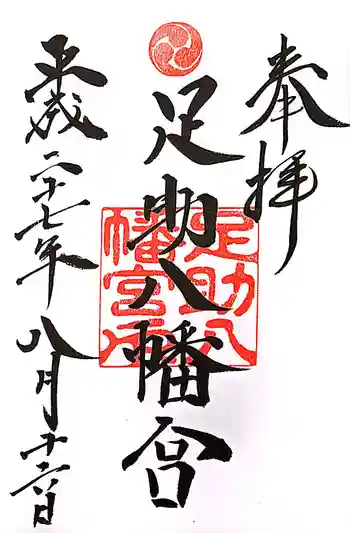 奉拝
足助八幡宮
平成二十七年八月十六日
足助八
幡宮印